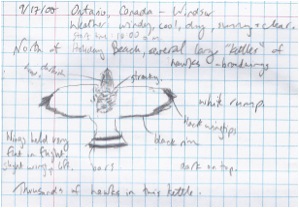 9/17/05 Ontario, Canada - Windsor
Weather: windy, cool, dry, sunny + clear.
start time 10:00 am
North of Holiday Beach, several large "kettles" of
hawks - broadwings
white rump
black wingtips
black rim
Wings held very
flat in flight.
bars
dark on top.
Thousands of hawks in this kettle.